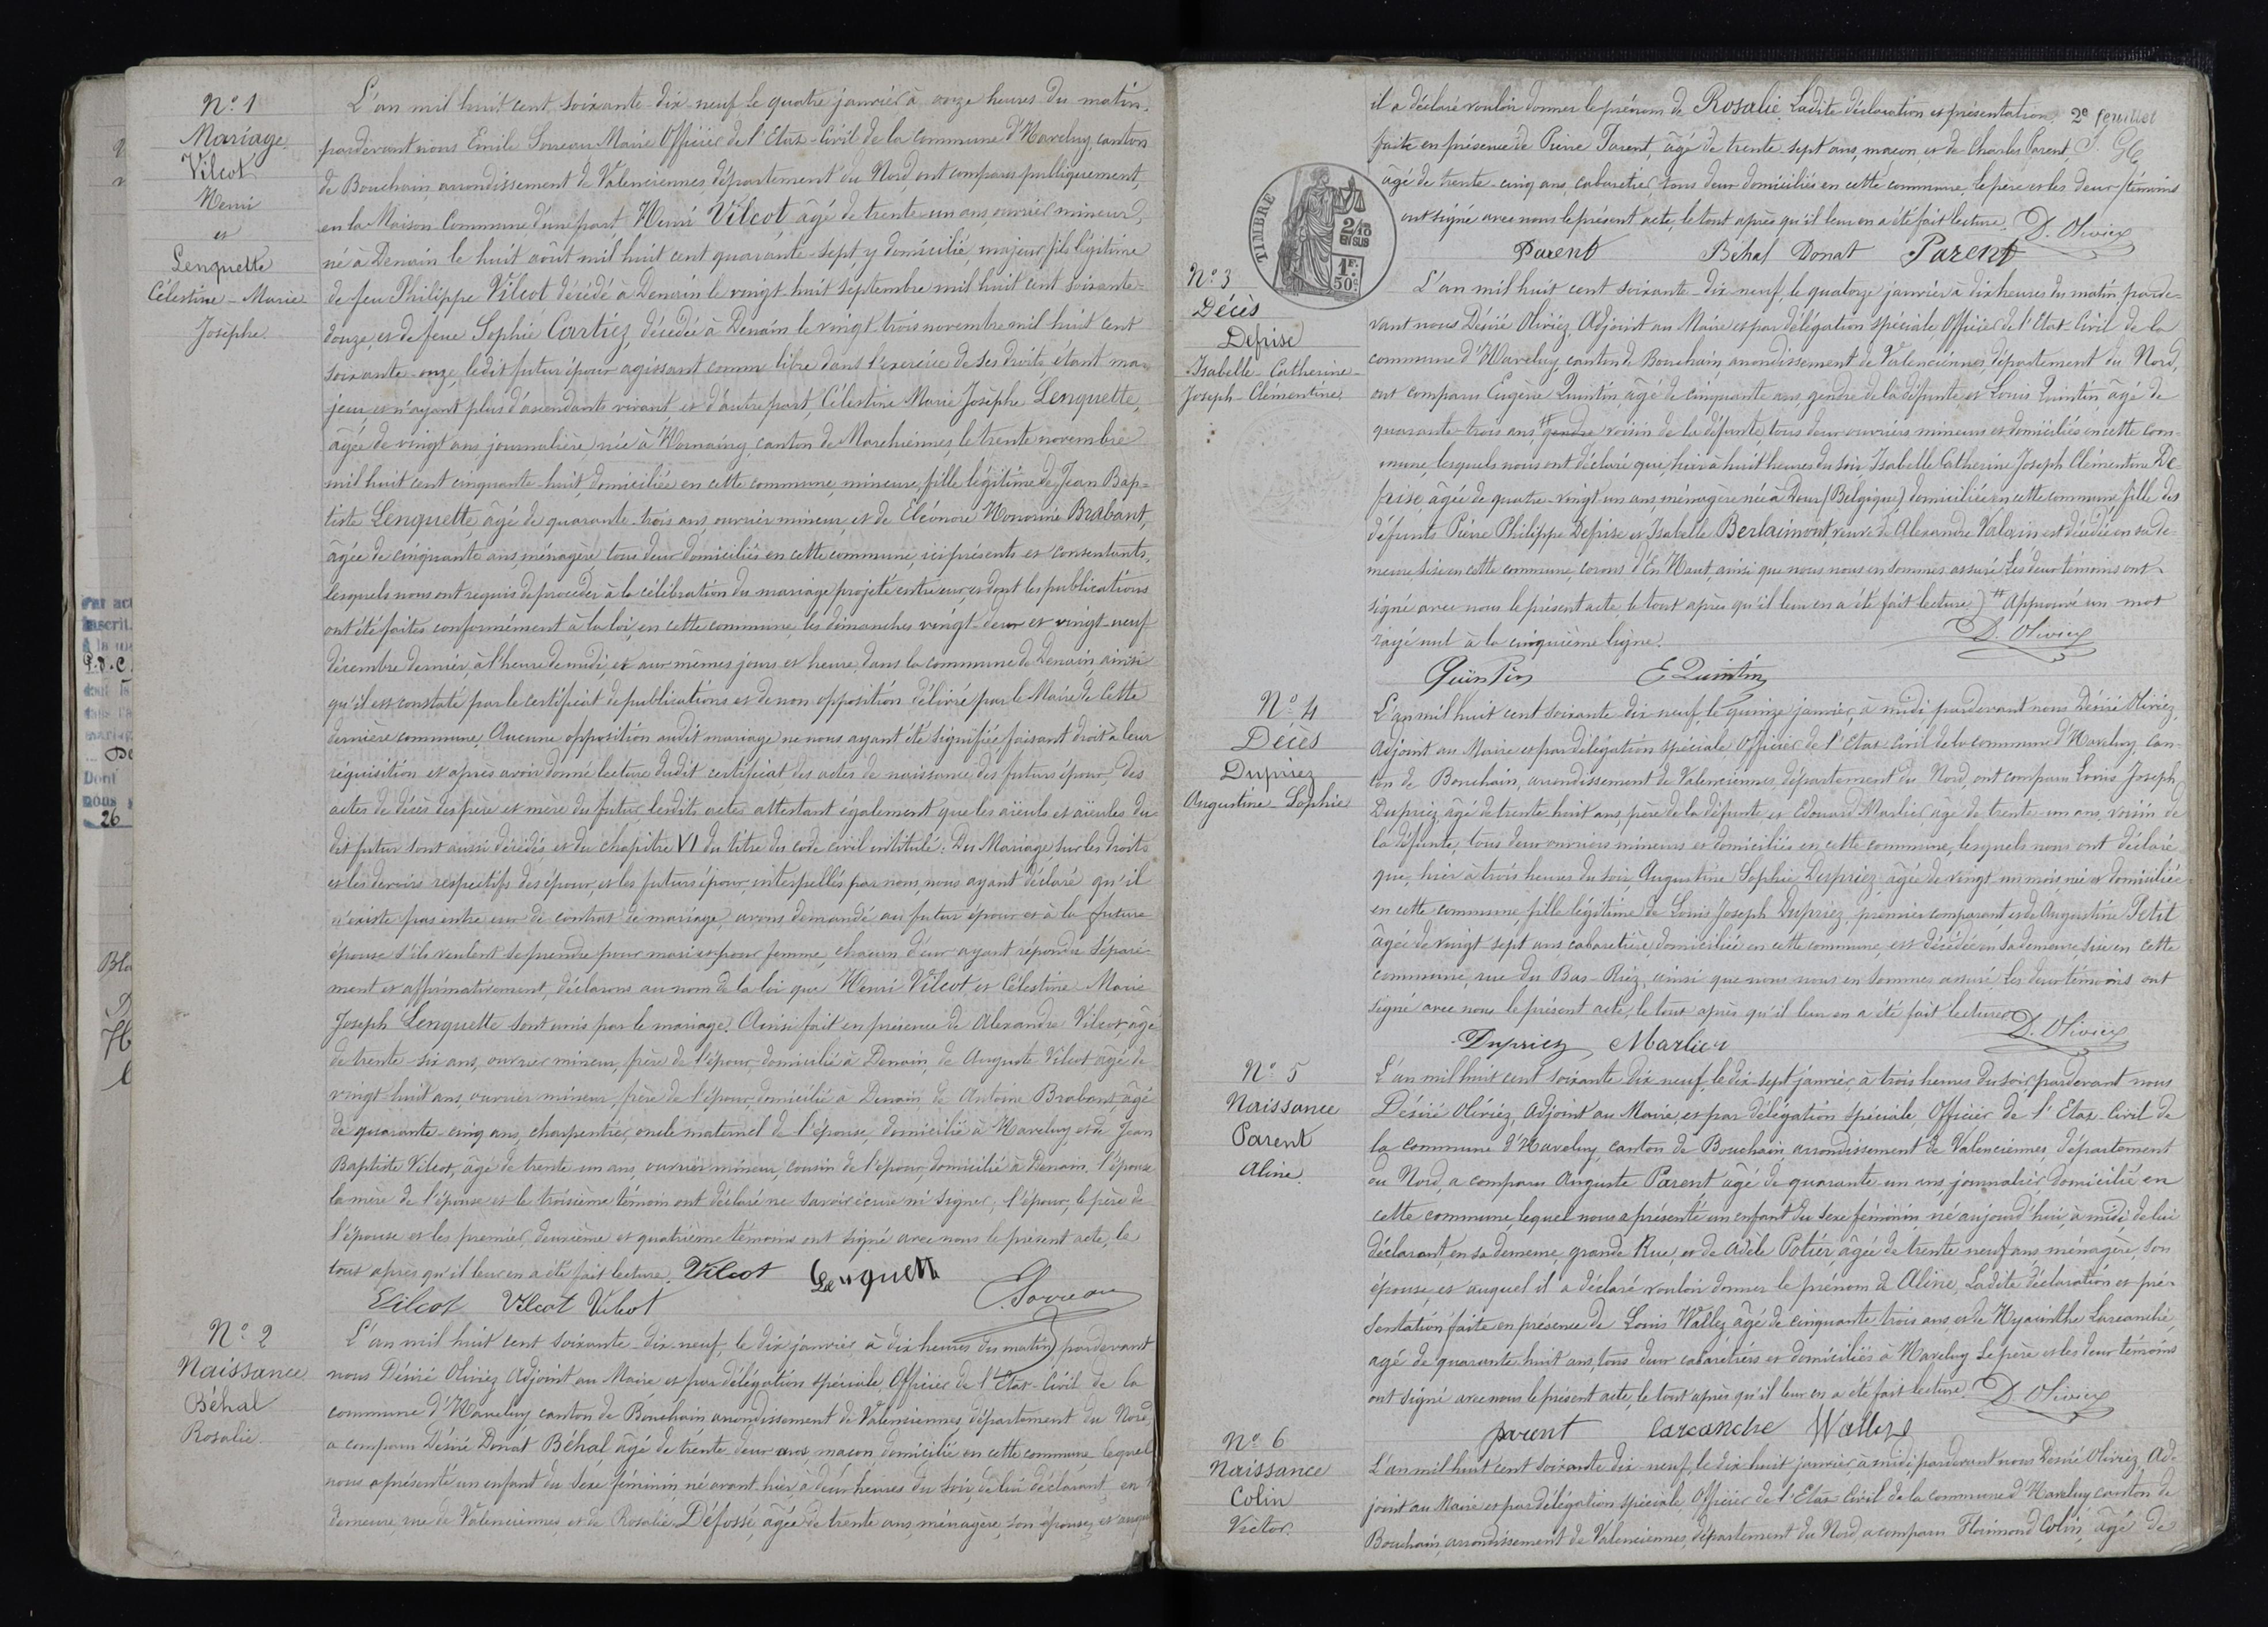 N° 1
Mariage
Vilcot
Henri
et
Lenquette
Célestine-Marie
Josèphe.
L'an mil huit cent soixante-dix-neuf le quatre janvier à onze heures du matin,
pardevant nous Emile Sorreau Maire Officier de l'Etat-Civil de la commune d'Haveluy canton
de Bouchain, arrondissement de Valenciennes, département du Nord, ont comparu publiquement,
en la Maison Commune d'une part Henri Vilcot, âgé de trente-un ans, ouvrier mineur,
né à Denain le huit août mil huit cent quarante-sept, y domicilié, majeur fils légitime
de feu Philippe Vilcot décédé à Denain le vingt-huit septembre mil huit cent soixante-
douze, et de feue Sophie Cartiez, décédée à Denain le vingt-trois novembre mil huit cent
soixante-onze, ledit futur époux agissant comme libre dans l'exercice de ses droits étant ma-
jeur et n'ayant plus d'ascendants vivant, et d'autre part, Célestine Marie Josèphe Lenquette,
âgée de vingt ans, journalière, née à Hornaing, canton de Marchiennes, le trente novembre
mil huit cent cinquante-huit, domiciliée en cette commune, mineure, fille légitime de Jean Bap-
tiste Lenquette, âgé de quarante-trois ans ouvrier mineur, et de Eléonore Honorine Brabant,
âgée de cinquante ans, ménagère, tous deux domiciliés en cette commune, ici présents et consentants,
lesquels nous ont requis de procéder à la célébration du mariage projeté entre eux, et dont les publications
ont été faites conformément à la loi, en cette commune, les dimanches vingt-deux et vingt-neuf
décembre dernier, à l'heure de midi, et aux mêmes jours et heure, dans la commune de Denain, ainsi
qu'il est constaté par le certificat de publications et de non opposition délivré par le Maire de cette
dernière commune. Aucune opposition audit mariage ne nous ayant été signifiée, faisant droit à leur
réquisition et après avoir donné lecture dudit certificat, des actes de naissance des futurs époux, des
actes de décès des père et mère du futur, lesdits actes attestant également que les aïeuls et aïeules du
dit futur sont aussi décédés, et du chapitre VI du titre du code civil intitulé: Du Mariage, sur les droits
et les devoirs respectifs des époux, et les futurs époux interpellés par nous, nous ayant déclaré qu'il
n'existe pas entre eux de contrat de mariage, avons demandé au futur époux et à la future
épouse s'ils veulent se prendre pour mari et pour femme, chacun d'eux ayant répondu séparé-
ment et affirmativement, déclarons au nom de la loi que Henri Vilcot et Célestine Marie
Joseph Lenquette sont unis par le mariage. Ainsi fait en présence de Alexandre Vilcot âgé
de trente-six ans, ouvrier mineur, frère de l'époux, domicilié à Denain, de Auguste Vilcot âgé de
vingt-huit ans, ouvrier mineur, frère de l'époux, domicilié à Denain, de Antoine Brabant, âgé
de quarante-cinq ans, charpentier, oncle maternel de l'épouse, domicilié à Haveluy, et de Jean
Baptiste Vilcot, âgé de trente-un ans, ouvrier mineur, cousin de l'époux, domicilié à Denain. l'épouse
la mère de l'épouse et le troisième témoin ont déclaré ne savoir écrire ni signer, l'époux, le père de
l'épouse et les premier, deuxième et quatrième témoins ont signé avec nous le présent acte, le
tout après qu'il leur en a été fait lecture. Vilcot Lenquett
Vilcot Vilcot Vilcot E. Sorreau
N° 2
Naissance
Béhal
Rosalie
L'an mil huit cent soixante-dix-neuf, le dix janvier, à dix heures du matin, pardevant
nous Désiré Oliviez Adjoint au Maire et par délégation spéciale, Officier de l'Etat-Civil de la
commune d'Haveluy canton de Bouchain, arrondissement de Valenciennes, département du Nord,
a comparu Désiré Donat Béhal âgé de trente-deux ans, maçon, domicilié en cette commune, lequel
nous a présenté un enfant du sexe féminin, né avant-hier, à deux heures du soir, de lui déclarant, en
demeure, rue de Valenciennes, et de Rosalie Défossé, âgée de trente ans, ménagère, son épouse, et auquel
il a déclaré vouloir donner le prénom de Rosalie. Ladite déclaration et présentation 2e feuillet
faite en présence de Pierre Parent, âgé de trente-sept ans, maçon, et de Charles Parent,
âgé de trente-cinq ans, cabaretier, tous deux domiciliés en cette commune, le père et les deux témoins
ont signé avec nous le présent acte, le tout après qu'il leur en a été fait lecture. D. Oliviez
Parent Béhal Donat Parent
TIMBRE
2/10
EN SUS
1F.
50c.
N° 3
Décès
Defrise
Isabelle-Catherine-
Joseph-Clémentine
L'an mil huit cent soixante-dix-neuf, le quatorze janvier à dix heures du matin, parde-
vant nous Désiré Oliviez, Adjoint au Maire et par délégation spéciale, Officier de l'Etat-Civil de la
commune d'Haveluy, canton de Bouchain, arrondissement de Valenciennes, département du Nord,
ont comparu Eugène Quintin, âgé de cinquante ans, gendre de la défunte et Louis Quintin, âgé de
quarante-trois ans, gendre voisin de la défunte, tous deux ouvriers mineurs et domiciliés en cette com-
mune, lesquels nous ont déclaré que, hier à huit heures du soir, Isabelle Catherine Joseph Clémentine De-
frise, âgée de quatre-vingt-un ans, ménagère, née à Dour (Belgique), domiciliée en cette commune, fille des
défunts Pierre Philippe Defrise et Isabelle Berlaimont, veuve de Alexandre Valexin est décédée en sa de-
meure, sise en cette commune, corons d'En Haut, ainsi que nous nous en sommes assuré. Les deux témoins ont
signé avec nous le présent acte le tout après qu'il leur en a été fait lecture.) Approuvé un mot
rayé nul à la cinquième ligne. D. Oliviez
Quintin E Quintin
N° 4
Décès
Dupriez
Augustine-Sophie
L'an mil huit cent soixante-dix-neuf, le quinze janvier, à midi pardevant nous Désiré Oliviez,
Adjoint au Maire et par délégation spéciale, Officier de l'Etat-Civil de la commune d'Haveluy, can-
ton de Bouchain, arrondissement de Valenciennes, département du Nord, ont comparu Louis Joseph
Dupriez, âgé de trente-huit ans, père de la défunte et Edouard Marlier, âgé de trente-un ans, voisin de
la défunte, tous deux ouvriers mineurs et domiciliés en cette commune, lesquels nous ont déclaré
que, hier à trois heures du soir, Augustine Sophie Dupriez âgée de vingt-un mois née et domiciliée
en cette commune, fille légitime de Louis Joseph Dupriez, premier comparant et de Augustine Petit
âgée de vingt-sept ans cabaretière, domiciliée en cette commune, est décédée en sa demeure, sise en cette
commune, rue du Bas-Riez, ainsi que nous nous en sommes assuré. Les deux témoins ont
signé avec nous le présent acte, le tout après qu'il leur en a été fait lecture. D. Oliviez
Dupriez Marlier
N° 5
Naissance
Parent
Aline.
L'an mil huit cent soixante-dix-neuf, le dix-sept janvier, à trois heures du soir, pardevant nous
Désiré Oliviez, Adjoint au Maire, et par délégation spéciale, Officier de l'Etat-Civil de
la commune d'Haveluy, canton de Bouchain, arrondissement de Valenciennes, département
du Nord, a comparu Auguste Parent âgé de quarante-un ans, journalier, domicilié en
cette commune, lequel nous a présenté un enfant du sexe féminin, né aujourd'hui, à midi, de lui
déclarant, en sa demeure, grande Rue, et de Adèle Potier, âgée de trente-neuf ans, ménagère, son
épouse, et auquel il a déclaré vouloir donner le prénom de Aline, Ladite déclaration et pré-
sentation faite en présence de Louis Wallez âgé de cinquante-trois ans et de Hyacinthe Larcanché,
âgé de quarante-huit ans, tous deux cabaretiers et domiciliés à Haveluy. Le père et les deux témoins
ont signé avec nous le présent acte, le tout après qu'il leur en a été fait lecture. D. Oliviez
parent Larcanche Wallez
N° 6
Naissance
Colin
Victor.
L'an mil huit cent soixante-dix-neuf, le dix-huit janvier, à midi, pardevant nous Désiré Oliviez, Ad-
joint au Maire et par délégation spéciale Officier de l'Etat-Civil de la commune d'Haveluy canton de
Bouchain, arrondissement de Valenciennes, département du Nord, a comparu Florimond Colin, âgé de